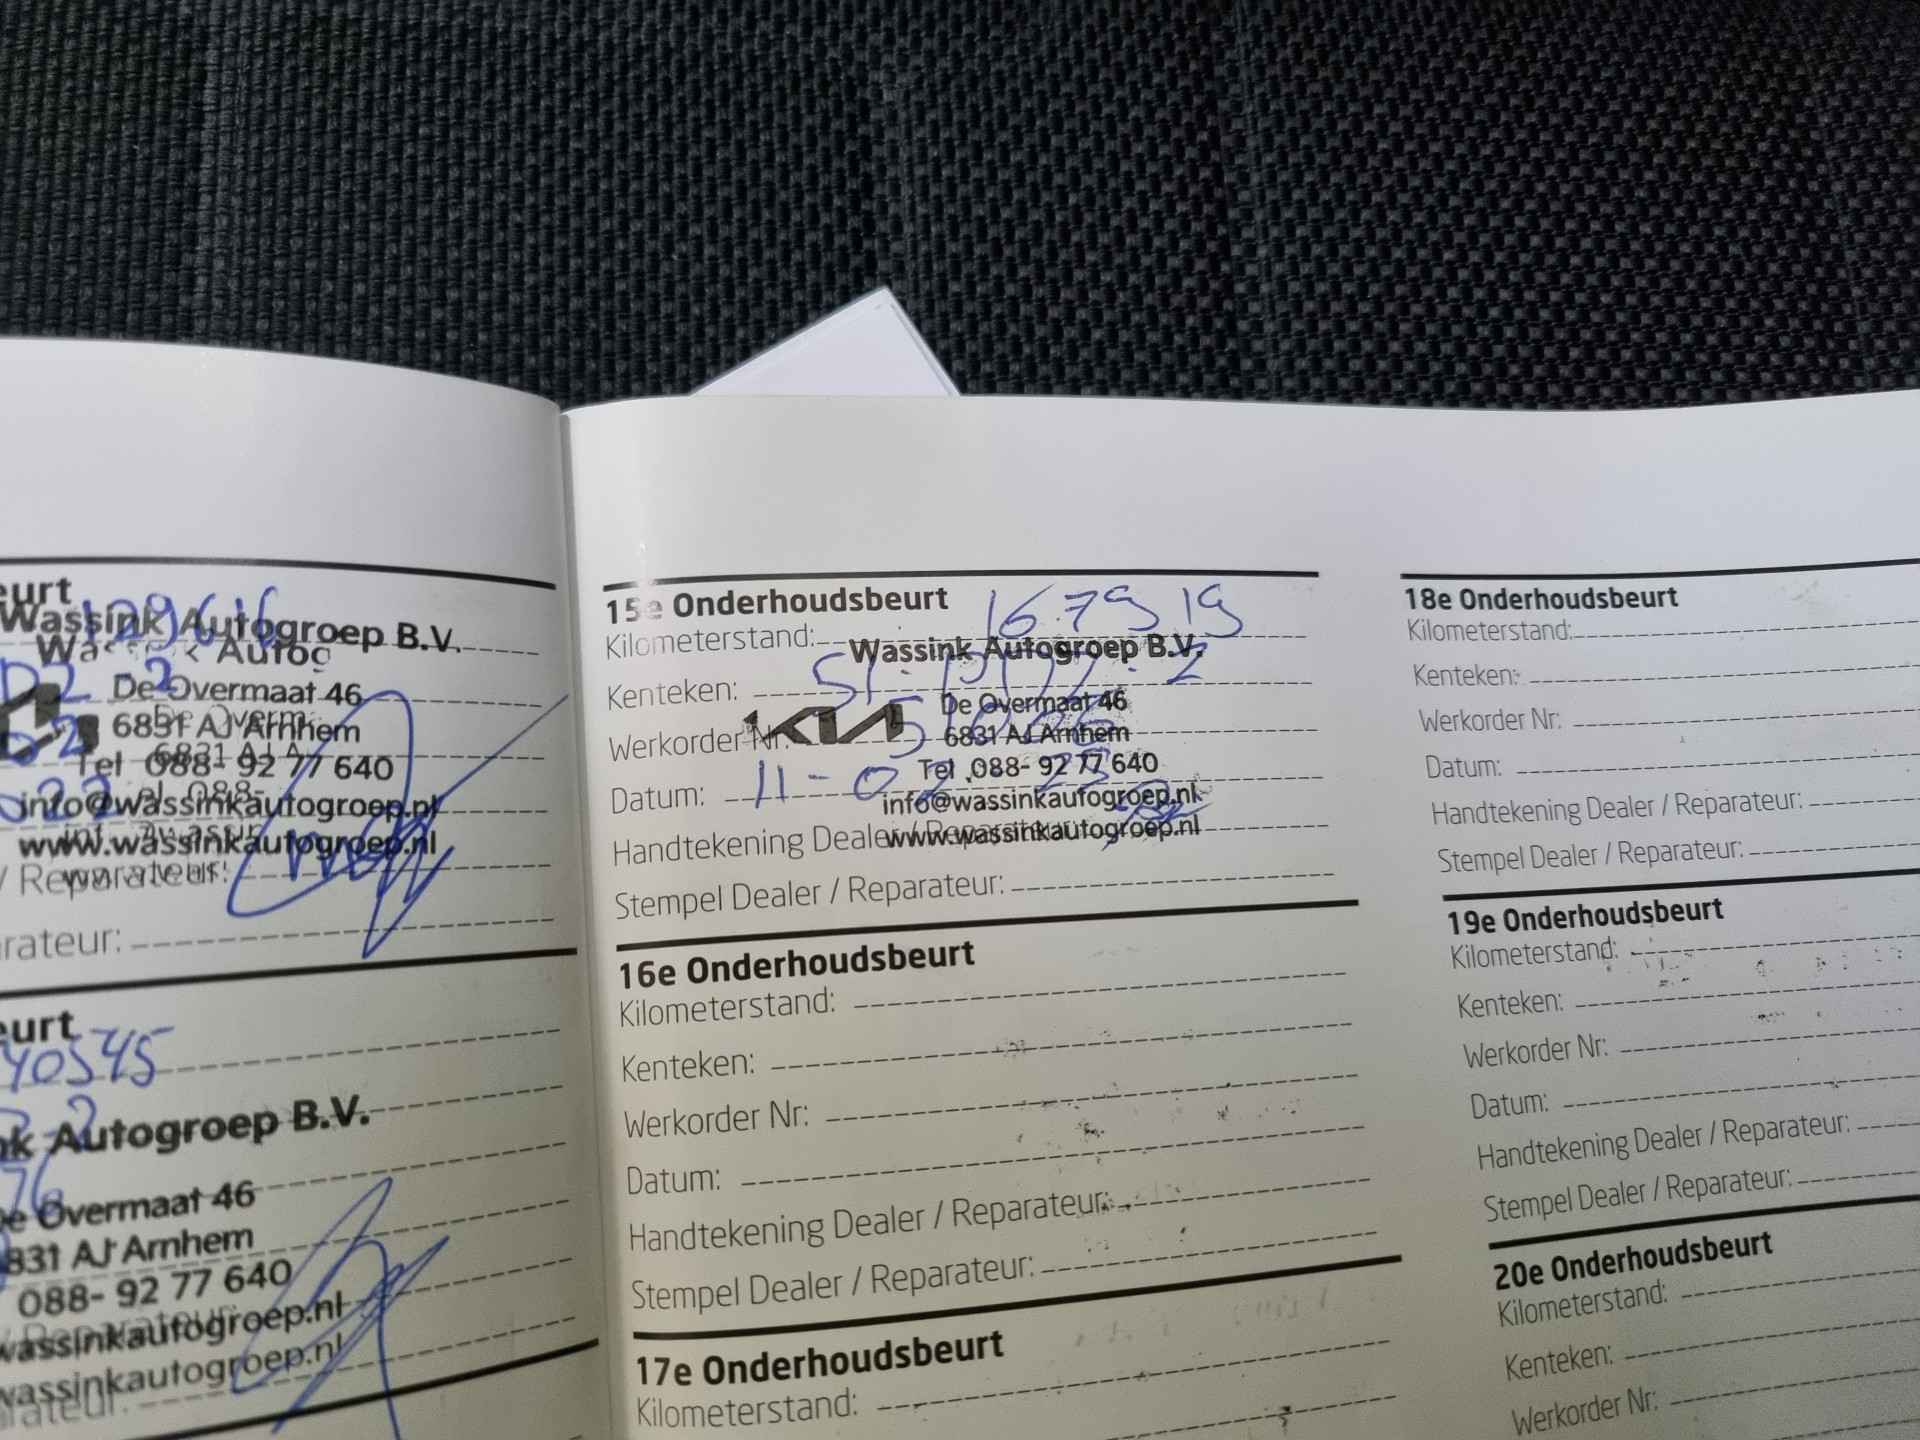 eurt
129616
Wassink Autogroep B.V.
De Overmaat 46
6831 AJ Arnhem
Tel 088- 92 77 640
info@wassinkautogroep.nl
www.wassinkautogroep.nl
/ Reparateur:
arateur:
eurt
40545
nk Autogroep B.V.
De Overmaat 46
831 AJ Arnhem
088- 92 77 640
wassinkautogroep.nl
wassinkautogroep.nl
arateur:
15e Onderhoudsbeurt
Kilometerstand: 167919
Wassink Autogroep B.V.
Kenteken:
De Overmaat 46
KIA
Werkorder Nr:
6831 AJ Arnhem
Tel 088- 92 77 640
Datum: 11-0
info@wassinkautogroep.nl
Handtekening Dealer / Reparateur:
www.wassinkautogroep.nl
Stempel Dealer / Reparateur:
16e Onderhoudsbeurt
Kilometerstand:
Kenteken:
Werkorder Nr:
Datum:
Handtekening Dealer / Reparateur:
Stempel Dealer / Reparateur:
17e Onderhoudsbeurt
Kilometerstand:
18e Onderhoudsbeurt
Kilometerstand:
Kenteken:
Werkorder Nr:
Datum:
Handtekening Dealer / Reparateur:
Stempel Dealer / Reparateur:
19e Onderhoudsbeurt
Kilometerstand:
Kenteken:
Werkorder Nr:
Datum:
Handtekening Dealer / Reparateur:
Stempel Dealer / Reparateur:
20e Onderhoudsbeurt
Kilometerstand:
Kenteken:
Werkorder Nr: